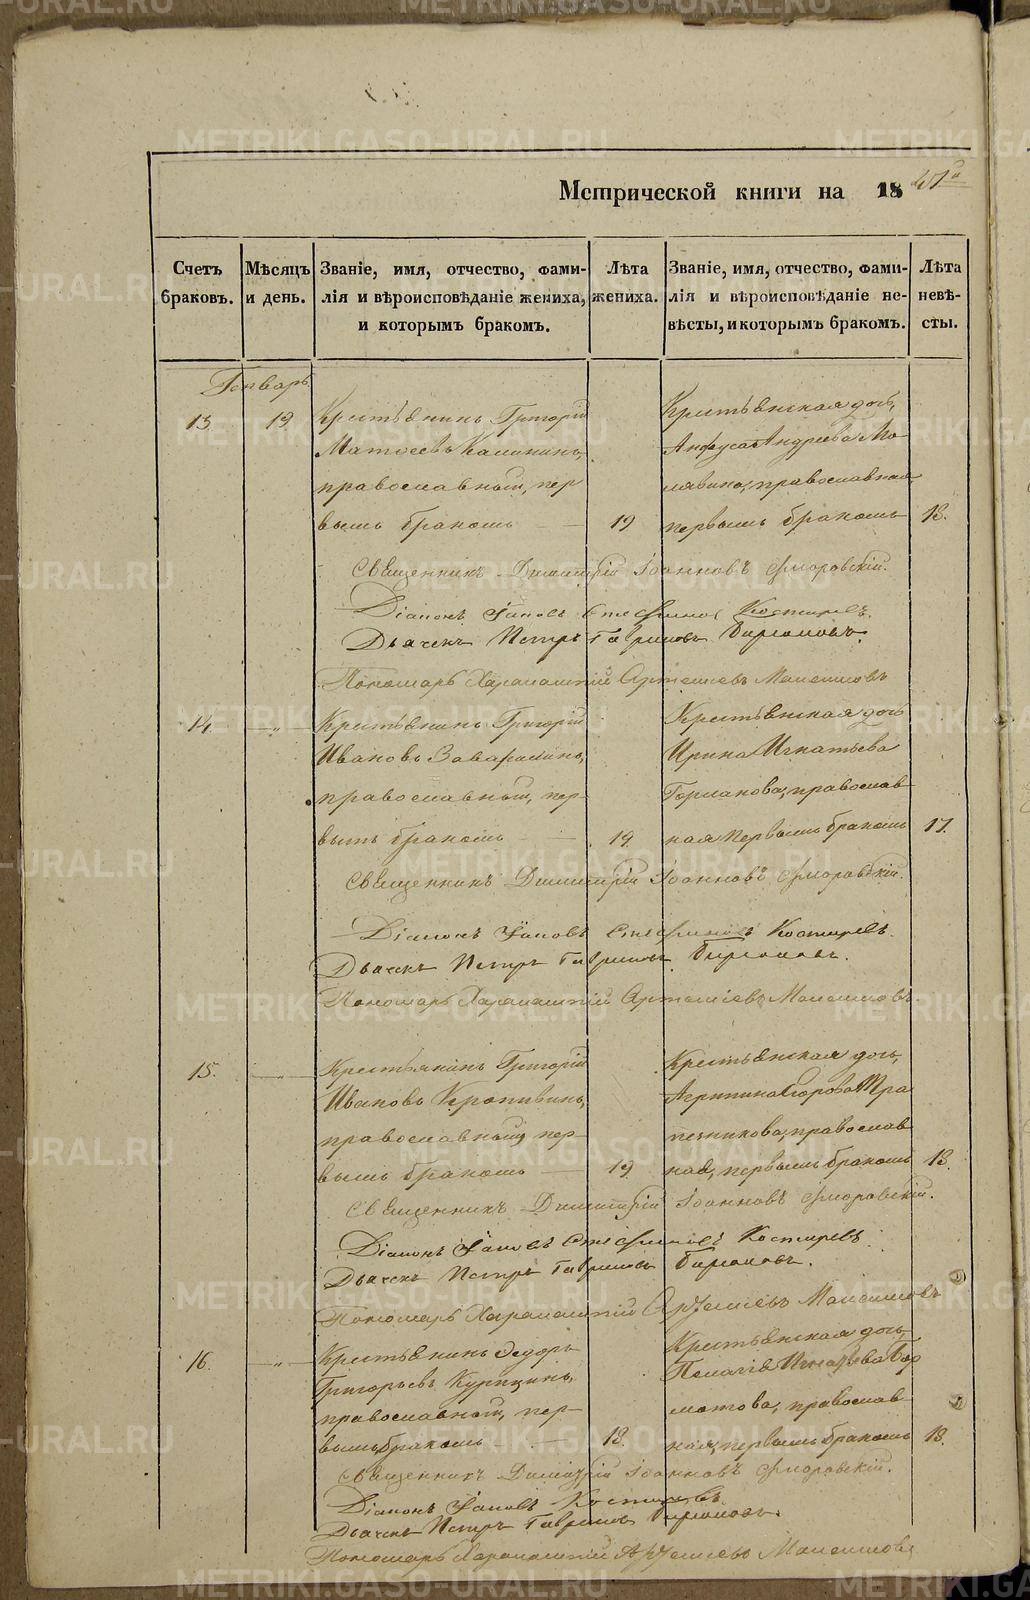 Метрической книги на 18
Счетъ браковъ.
Мѣсяцъ и день.
Званіе, имя, отчество, фами-
лія и вѣроисповѣданіе жениха,
и которымъ бракомъ.
Лѣта жениха.
Званіе, имя, отчество, фами-
лія и вѣроисповѣданіе не-
вѣсты, и которымъ бракомъ.
Лѣта невѣ-
сты.
Генварь
13. 19.
Крестьянинъ Григорій
Матѳеевъ Калининъ,
православный, пер
вымъ бракомъ 19
Крестьянская дочь,
Андреева Ма
лявина, православная
первымъ бракомъ 18.
Священникъ Димитрій Іоанновъ
Діаконъ Іаковъ Стефановъ Костыревъ.
Дьячекъ Петръ Гавриловъ
Пономарь Харалампій Артемьевъ
14. —„—
Крестьянинъ Григорій
Ивановъ
православный, пер-
вымъ бракомъ 19.
Крестьянская дочь
Ирина Игнатьева
православ
ная первымъ бракомъ 17.
Священникъ Димитрій Іоанновъ
Діаконъ Іаковъ Стефановъ Костыревъ.
Дьячекъ Петръ Гавриловъ
Пономарь Харалампій Артемьевъ
15. —„—
Крестьянинъ Григорій
Ивановъ Кропивинъ,
православный пер-
вымъ бракомъ 19.
Крестьянская дочь,
Агрипина Тра
пезникова, православ
ная, первымъ бракомъ 18.
Священникъ Димитрій Іоанновъ
Діаконъ Іаковъ Стефановъ Костыревъ
Дьячекъ Петръ Гавриловъ
Пономарь Харалампій Артемьевъ
16. —„—
Крестьянинъ Ѳедоръ
Григорьевъ Курицинъ,
православный, пер-
вымъ бракомъ 18.
Крестьянская дочь,
Пелагія Игнатьева
православ-
ная, первымъ бракомъ 18.
Священникъ Димитрій Іоанновъ
Діаконъ Іаковъ Костыревъ
Дьячекъ Петръ Гавриловъ
Пономарь Харалампій Артемьевъ
METRIKI.GASO-URAL.RU